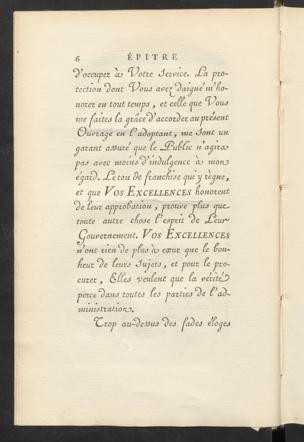 6 ÉPITRE
d'occuper à Votre Service. La pro-
tection dont Vous avez daigné m'ho-
norer en tout temps, et celle que Vous
me faites la grâce d'accorder au présent
Ouvrage en l'adoptant, me sont un
garant assuré que le Public n'agira
pas avec moins d'indulgence à mon
égard. Le ton de franchise qui y règne,
et que VOS EXCELLENCES honorent
de leur approbation, prouve plus que
toute autre chose l'esprit de Leur
Gouvernement. VOS EXCELLENCES
n'ont rien de plus à cœur que le bon-
heur de leurs Sujets, et pour le pro-
curer, Elles veulent que la vérité
perce dans toutes les parties de l'ad-
ministration.
Trop au-dessus des fades éloges